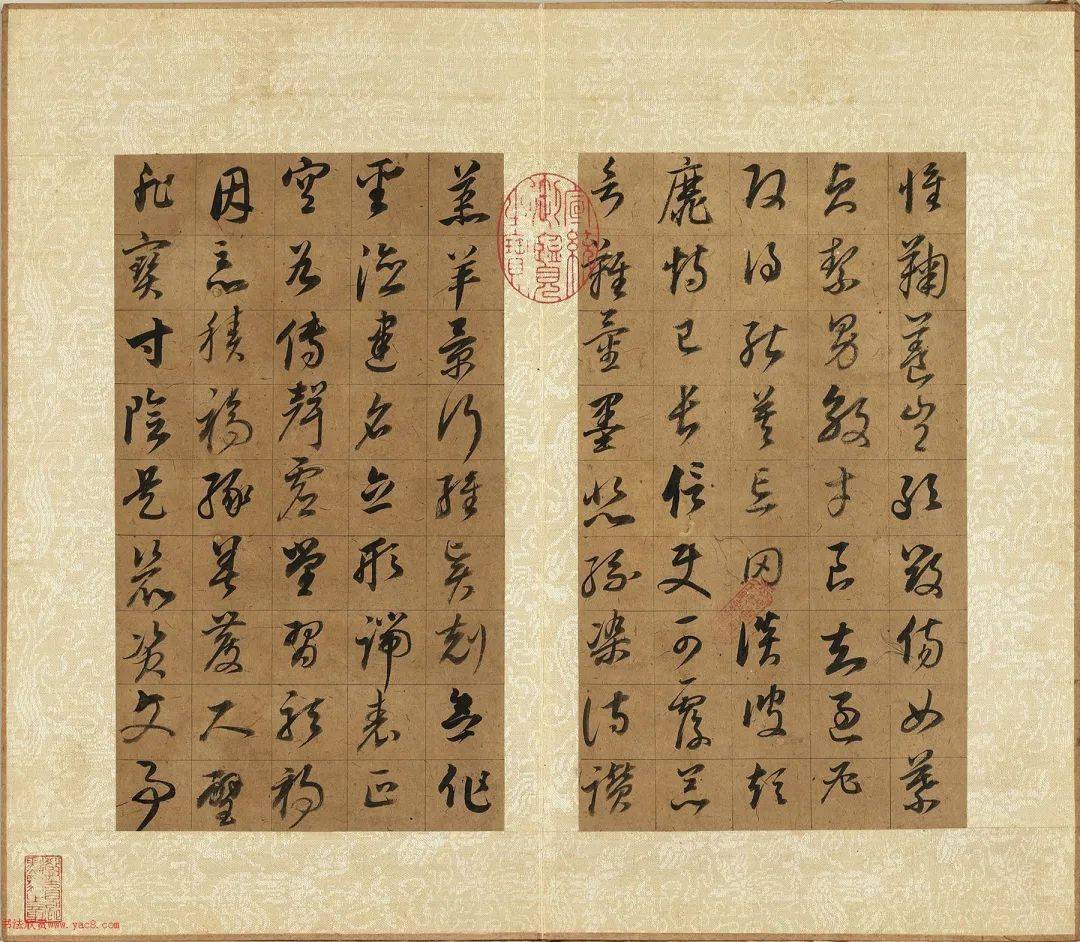 惟鞠養豈敢毀傷女慕
貞絜男效才良知過必
改得能莫忘罔談彼短
靡恃己長信使可覆器
欲難量墨悲絲染詩讚
羔羊景行維賢剋念作
聖德建名立形端表正
空谷傳聲虛堂習聽禍
因惡積福緣善慶尺璧
非寶寸陰是競資父事
宣統
御覽
之寶
书法欣赏www.yac8.com